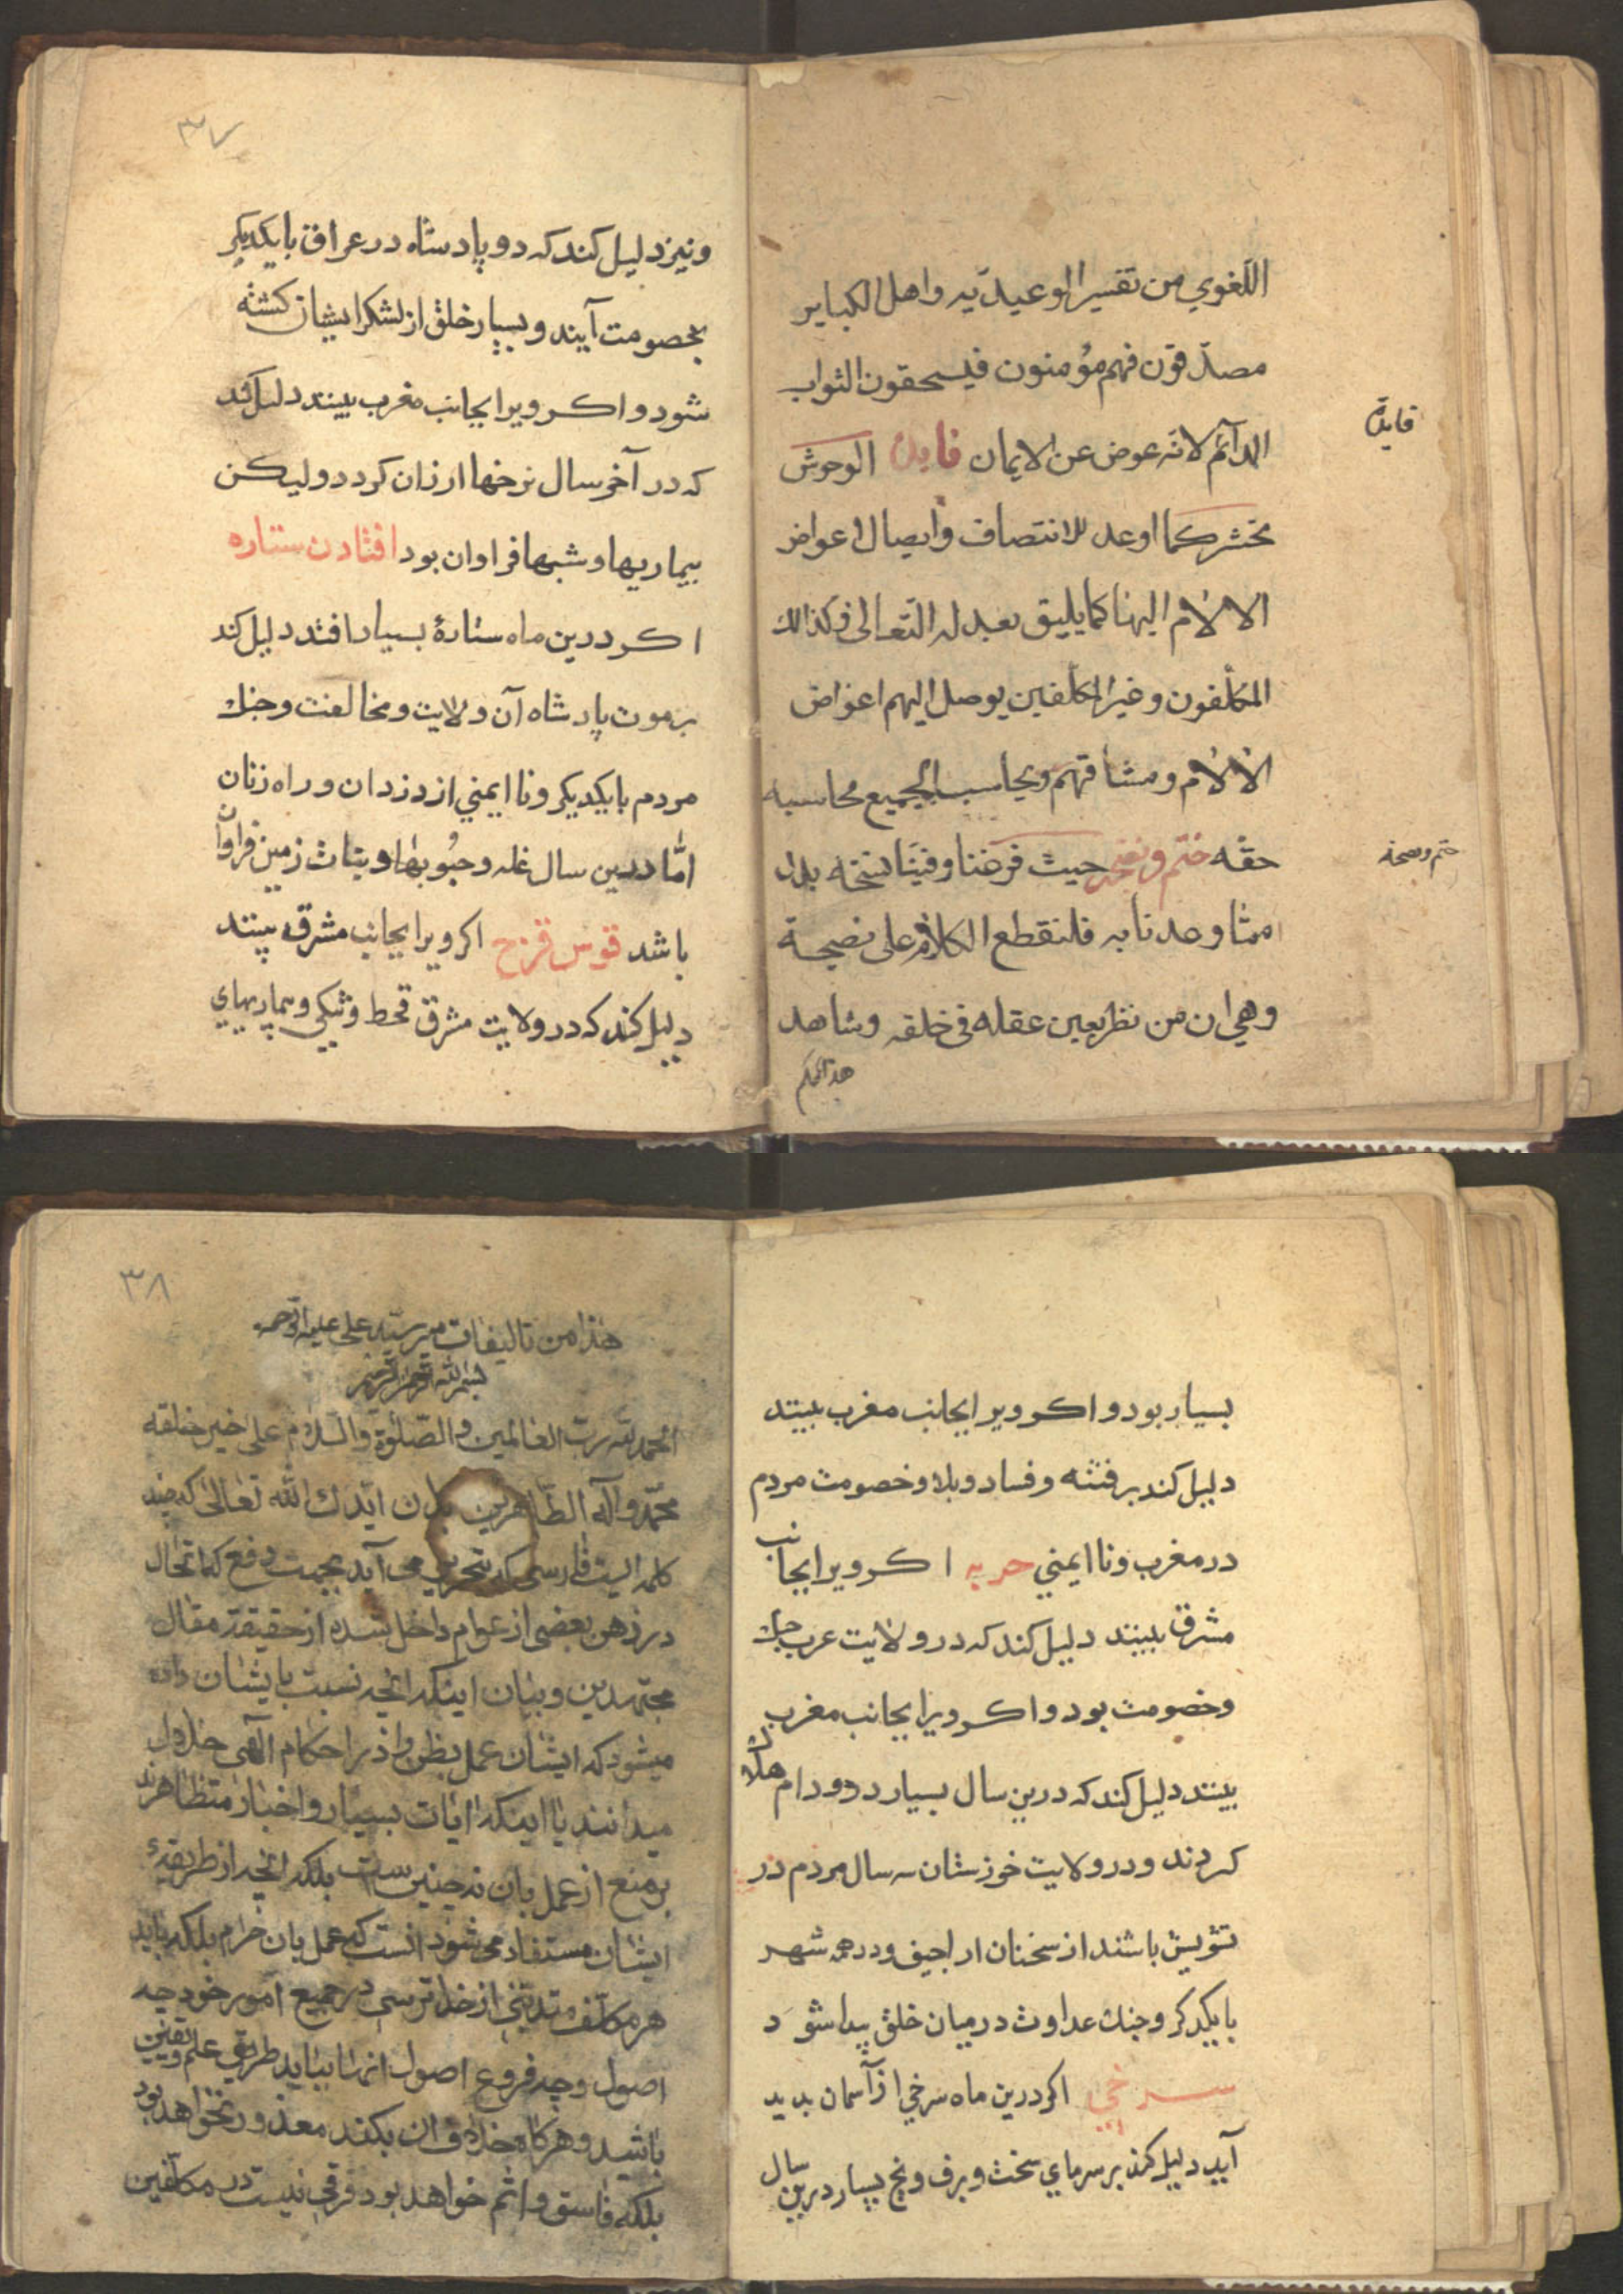 اللّغوي من تفسير الوعيديّه واهل الكباير
مصدّقون فهم مؤمنون فيستحقون الثواب
الدآئم لانّه عوض عن الايمان فايدة الوحوش
فايدة
تحشر كما اوعد للانتصاف وايصال اعواض
الالام اليها كما يليق بعدله التعالى فكذالك
المكلّفون وغير المكلّفين يوصل اليهم اعواض
الالام ومشاقهم ويحاسب الجميع محاسبه
حقه ختم ونصيحة حيث فرغنا وفينا نسخه بدل
ختم ونصيحة
مما وعدنا به فلنقطع الكلام على نصيحة
وهي ان من نظر بعين عقله فى خلقه وشاهد
٣٧
ونيز دليل كند كه دو پادشاه در عراق با يكديكر
بخصومت آيند و بسيار خلق از لشكر ايشان كشته
شود و اكر ويرا بجانب مغرب بينند دليل كند
كه در آخر سال نرخها ارزان كردد وليكن
بيماريها و شبها فراوان بود افتادن ستاره
اكر درين ماه ستارۀ بسيار افتد دليل كند
بر موت پادشاه آن ولايت و مخالفت و جنك
مردم با يكديكر و نا ايمني از دزدان و راه زنان
امّا درين سال غله و حبوبها و نبات زمين فراوان
باشد قوس قزح اكر ويرا بجانب مشرق بينند
دليل كند كه در ولايت مشرق قحط و تنكي و بيماريهاي
بسيار بود و اكر ويرا بجانب مغرب بينند
دليل كند بر فتنه و فساد و بلا و خصومت مردم
در مغرب و نا ايمني حربه اكر ويرا بجانب
مشرق بينند دليل كند كه در ولايت عرب جنك
و خصومت بود و اكر ويرا بجانب مغرب
بينند دليل كند كه درين سال بسيار دد و دام هلاك
كردند و در ولايت خوزستان سه سال مردم در
تشويش باشند از سخنان اراجيف و در همه شهر
با يكدكر و جنك عداوت در ميان خلق پيدا شود
سرخي اكر درين ماه سرخي از آسمان بديد
آيد دليل كند بر سرماي سخت و برف و يخ بسيار درين سال
٣٨
هذا من تاليفات مير سيّد على عليه الرّحمه
بسم الله الرحمن الرحيم
الحمد لله ربّ العالمين والصّلوة والسّلام على خير خلقه
محمّد وآله الطّاهرين بدان ايّدك الله تعالى كه چند
كلمه ايست فارسى كه بتحرير مى آيد بجهت دفع
در ذهن بعضى از عوام داخل شده از حقيقة مقال
مجتهدين و بيان اينكه آنچه نسبت بايشان داده
ميشود كه ايشان عمل بظن را در احكام الهى حلال
ميدانند با اينكه ايات بسيار و اخبار متظاهرند
بر منع از عمل بان نه چنين است بلكه انچه از طريقۀ
ايشان مستفاد مى شود انست كه عمل بان حرام بلكه بايد
هر مكلّف متديّنى از خدا ترسى در جميع امور خود چه
اصول و چه فروع اصول انها بنايد طريق علم و يقين
باشد و هر كاه خلاف ان بكند معذور نخواهد بود
بلكه فاسق و اثم خواهد بود فرقى نيست در مكلّفين